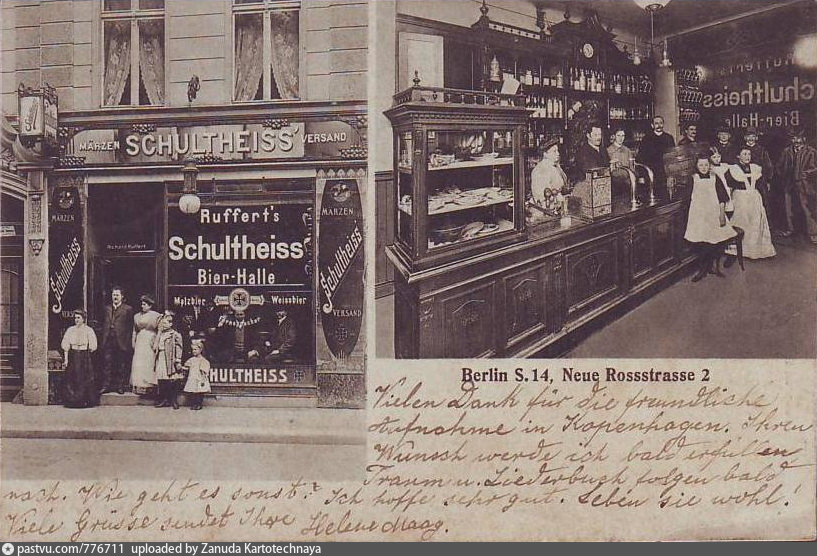 MÄRZEN SCHULTHEISS' VERSAND
MÄRZEN
Schultheiss
Richard Ruffert
Ruffert's
Schultheiss
Bier-Halle
Malzbier Weissbier
SCHULTHEISS
MÄRZEN
Schultheiss
VERSAND
Ruffert's
Schultheiss
Bier-Halle
Berlin S. 14, Neue Rossstrasse 2
Vielen Dank für die freundliche
Aufnahme in Kopenhagen. Ihren
Wunsch werde ich bald erfüllen
Traum u. Liederbuch folgen bald
nach. Wie geht es sonst? Ich hoffe sehr gut. Leben sie wohl!
Viele Grüsse sendet Ihre Helene Maag.
pastvu.com/776711 uploaded by Zanuda Kartotechnaya